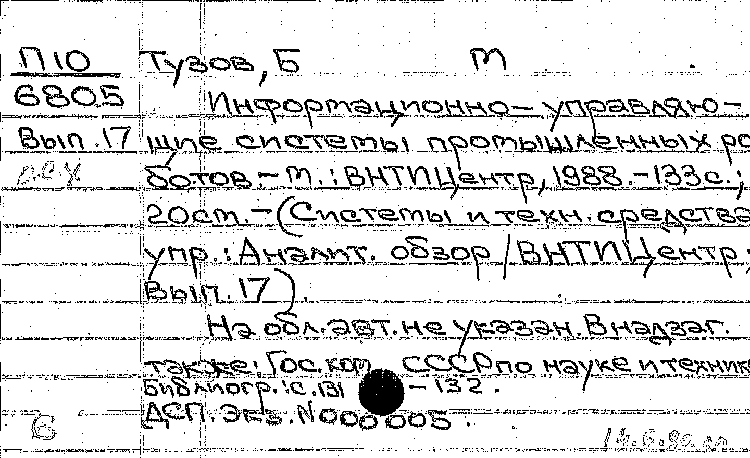 П10 Тузов, Б м
6805 Информационно-управляю-
Вып.17 щие системы промышленных ро
ботов.-М.:ВНТИЦентр,1988.-133с.;
20см.-(Системы и техн.средства
упр.:Аналит. обзор/ВНТИЦентр;
Вып.17).
На обл.авт.не указан.В надзаг.
также:Гос.ком. СССР по науке и техник
Библиогр.:с.131-132.
ДСП.Экз.N000005.
6